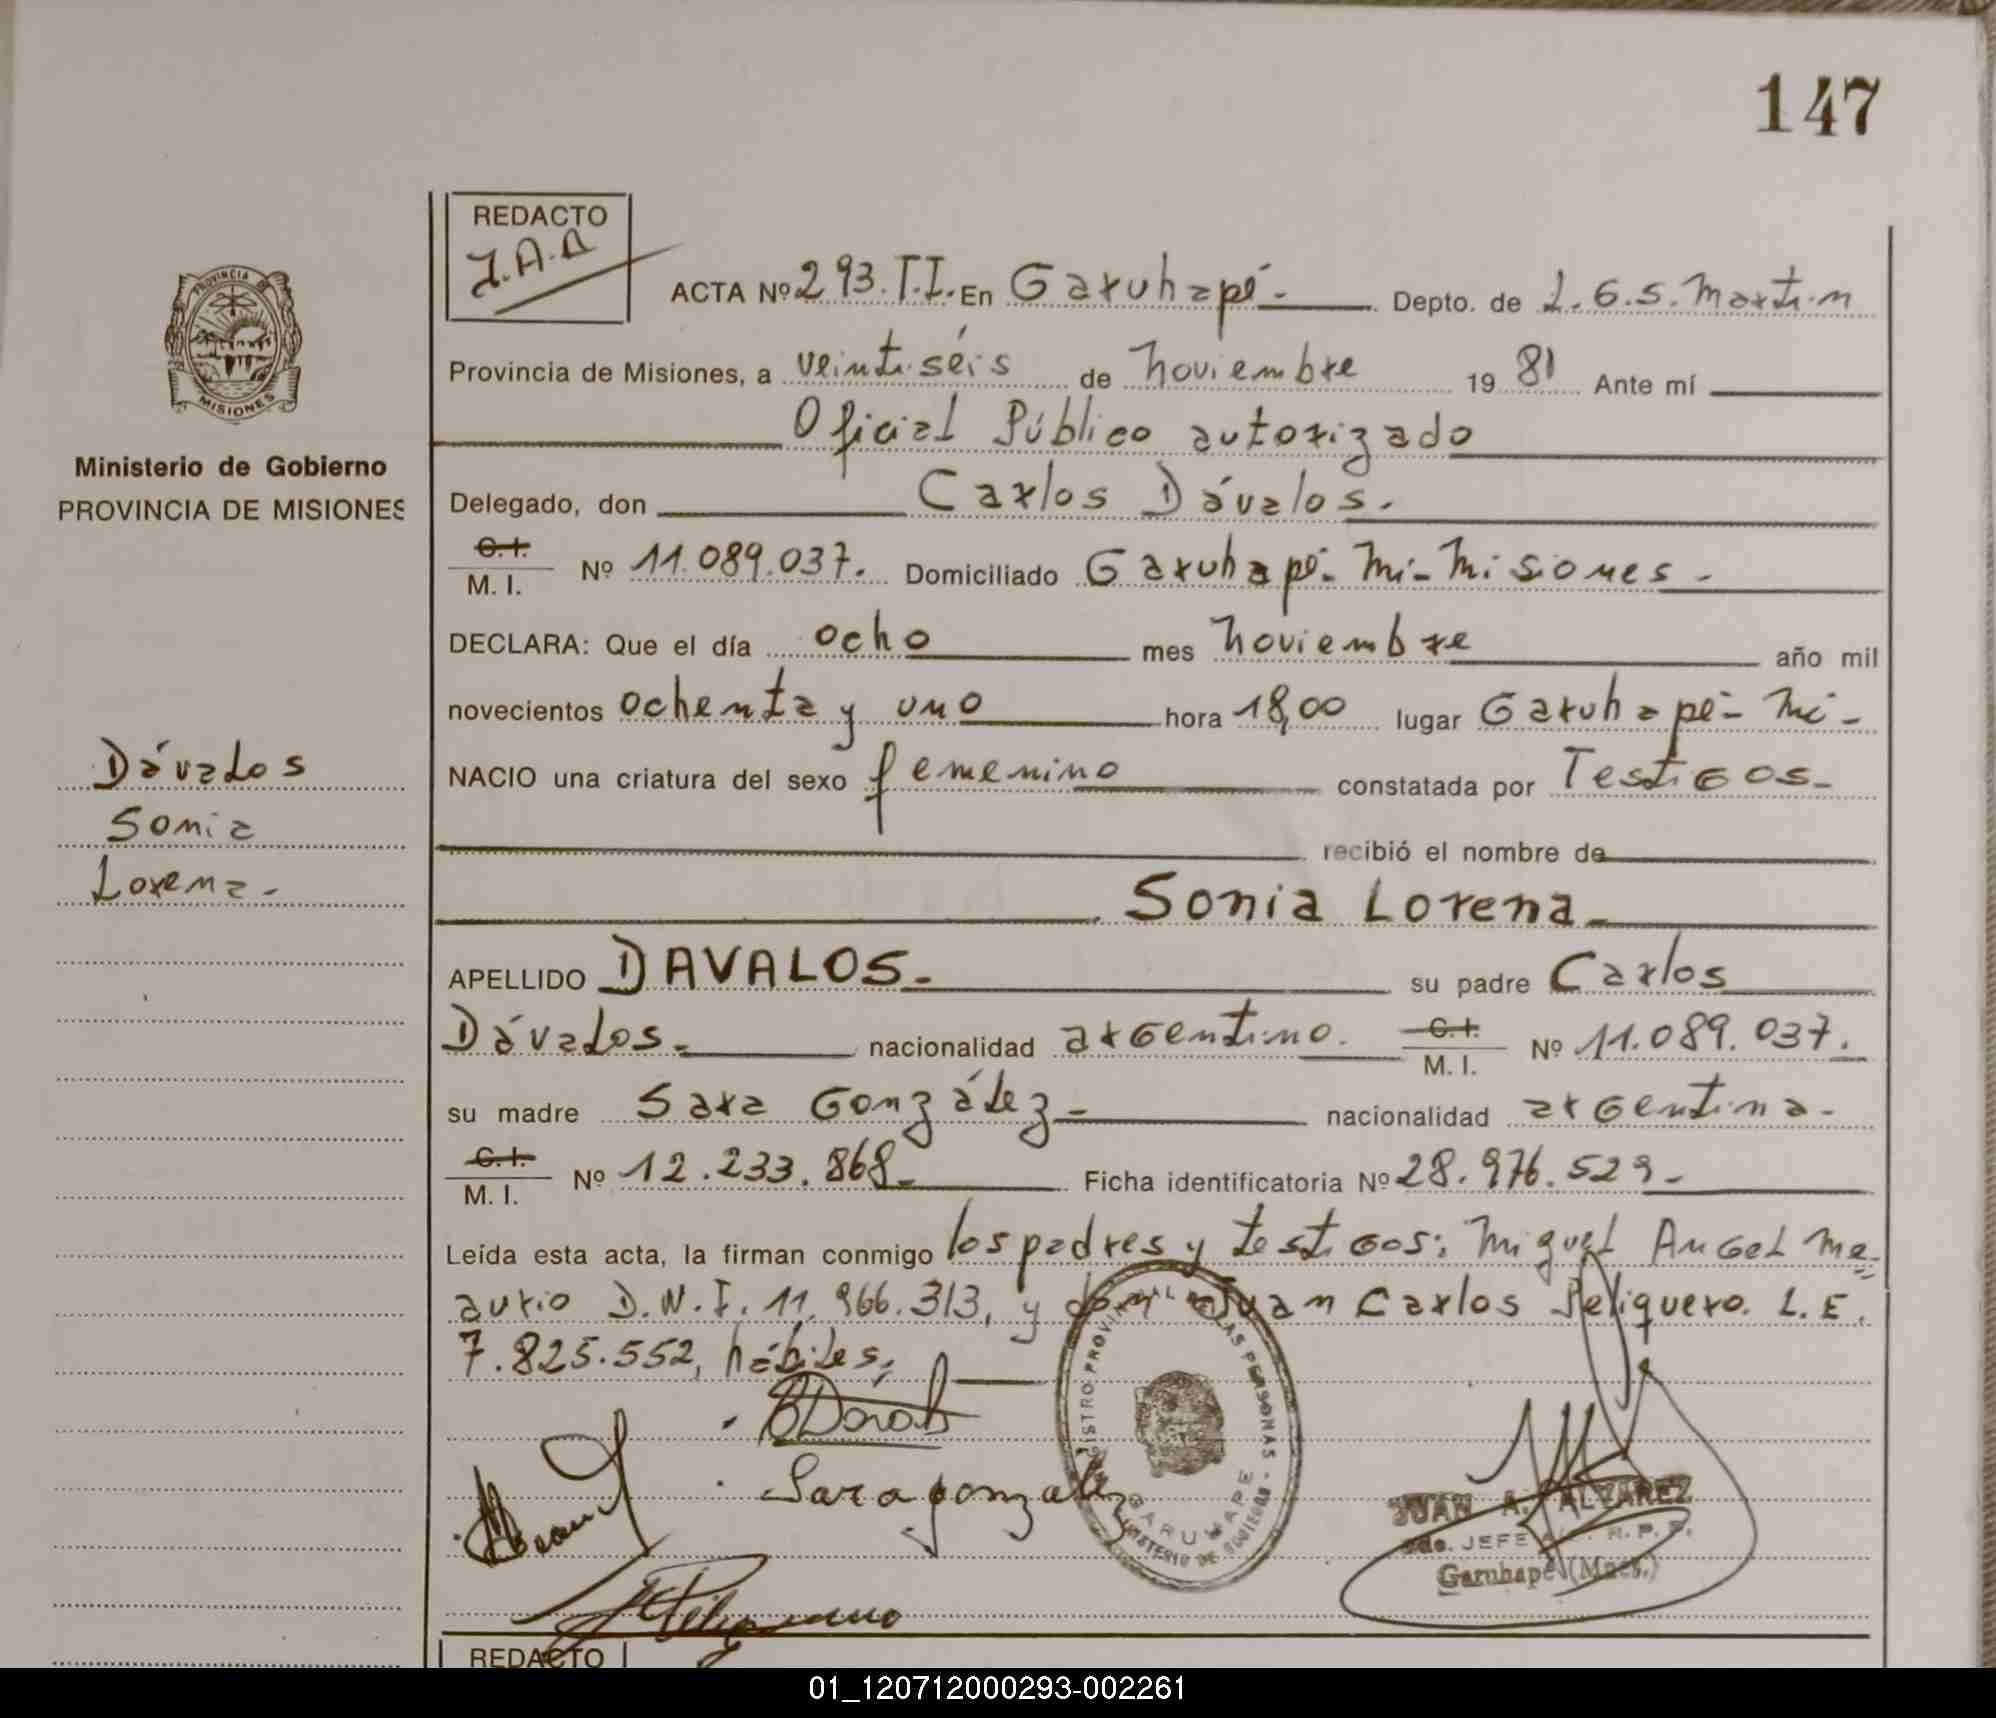 147
REDACTO
J.A.A
ACTA Nº 293.T.I. En Garuhapé- Depto. de L.G.S. Martin
Provincia de Misiones, a veintiséis de noviembre 19 81 Ante mí
Oficial Público autorizado
Delegado, don Carlos Dávalos.
C.I.
M. I. Nº 11.089.037. Domiciliado Garuhapé- Mi- Misiones-
DECLARA: Que el día ocho mes noviembre año mil
novecientos ochenta y uno hora 18,00 lugar Garuhapé- Mi-
NACIO una criatura del sexo femenino constatada por Testigos-
recibió el nombre de
Sonia Lorena-
APELLIDO DAVALOS- su padre Carlos
Dávalos- nacionalidad argentino. C.I. M. I. Nº 11.089.037.
su madre Sara González- nacionalidad argentina-
C.I.
M. I. Nº 12.233.868- Ficha identificatoria Nº 28.976.529-
Leída esta acta, la firman conmigo los padres y testigos: Miguel Angel Me-
aurio D.N.I. 11.966.313, y don Juan Carlos Peliquero. L.E.
7.825.552, hábiles;
Sara gonzalez
REGISTRO PROVINCIAL DE LAS PERSONAS
GARUHAPE
MINISTERIO DE GOBIERNO
JUAN A. ALVAREZ
JEFE R. P. P.
Garuhapé (Mnes.)
REDACTO
PROVINCIA DE
MISIONES
Ministerio de Gobierno
PROVINCIA DE MISIONES
Dávalos
Sonia
Lorena-
01_120712000293-002261